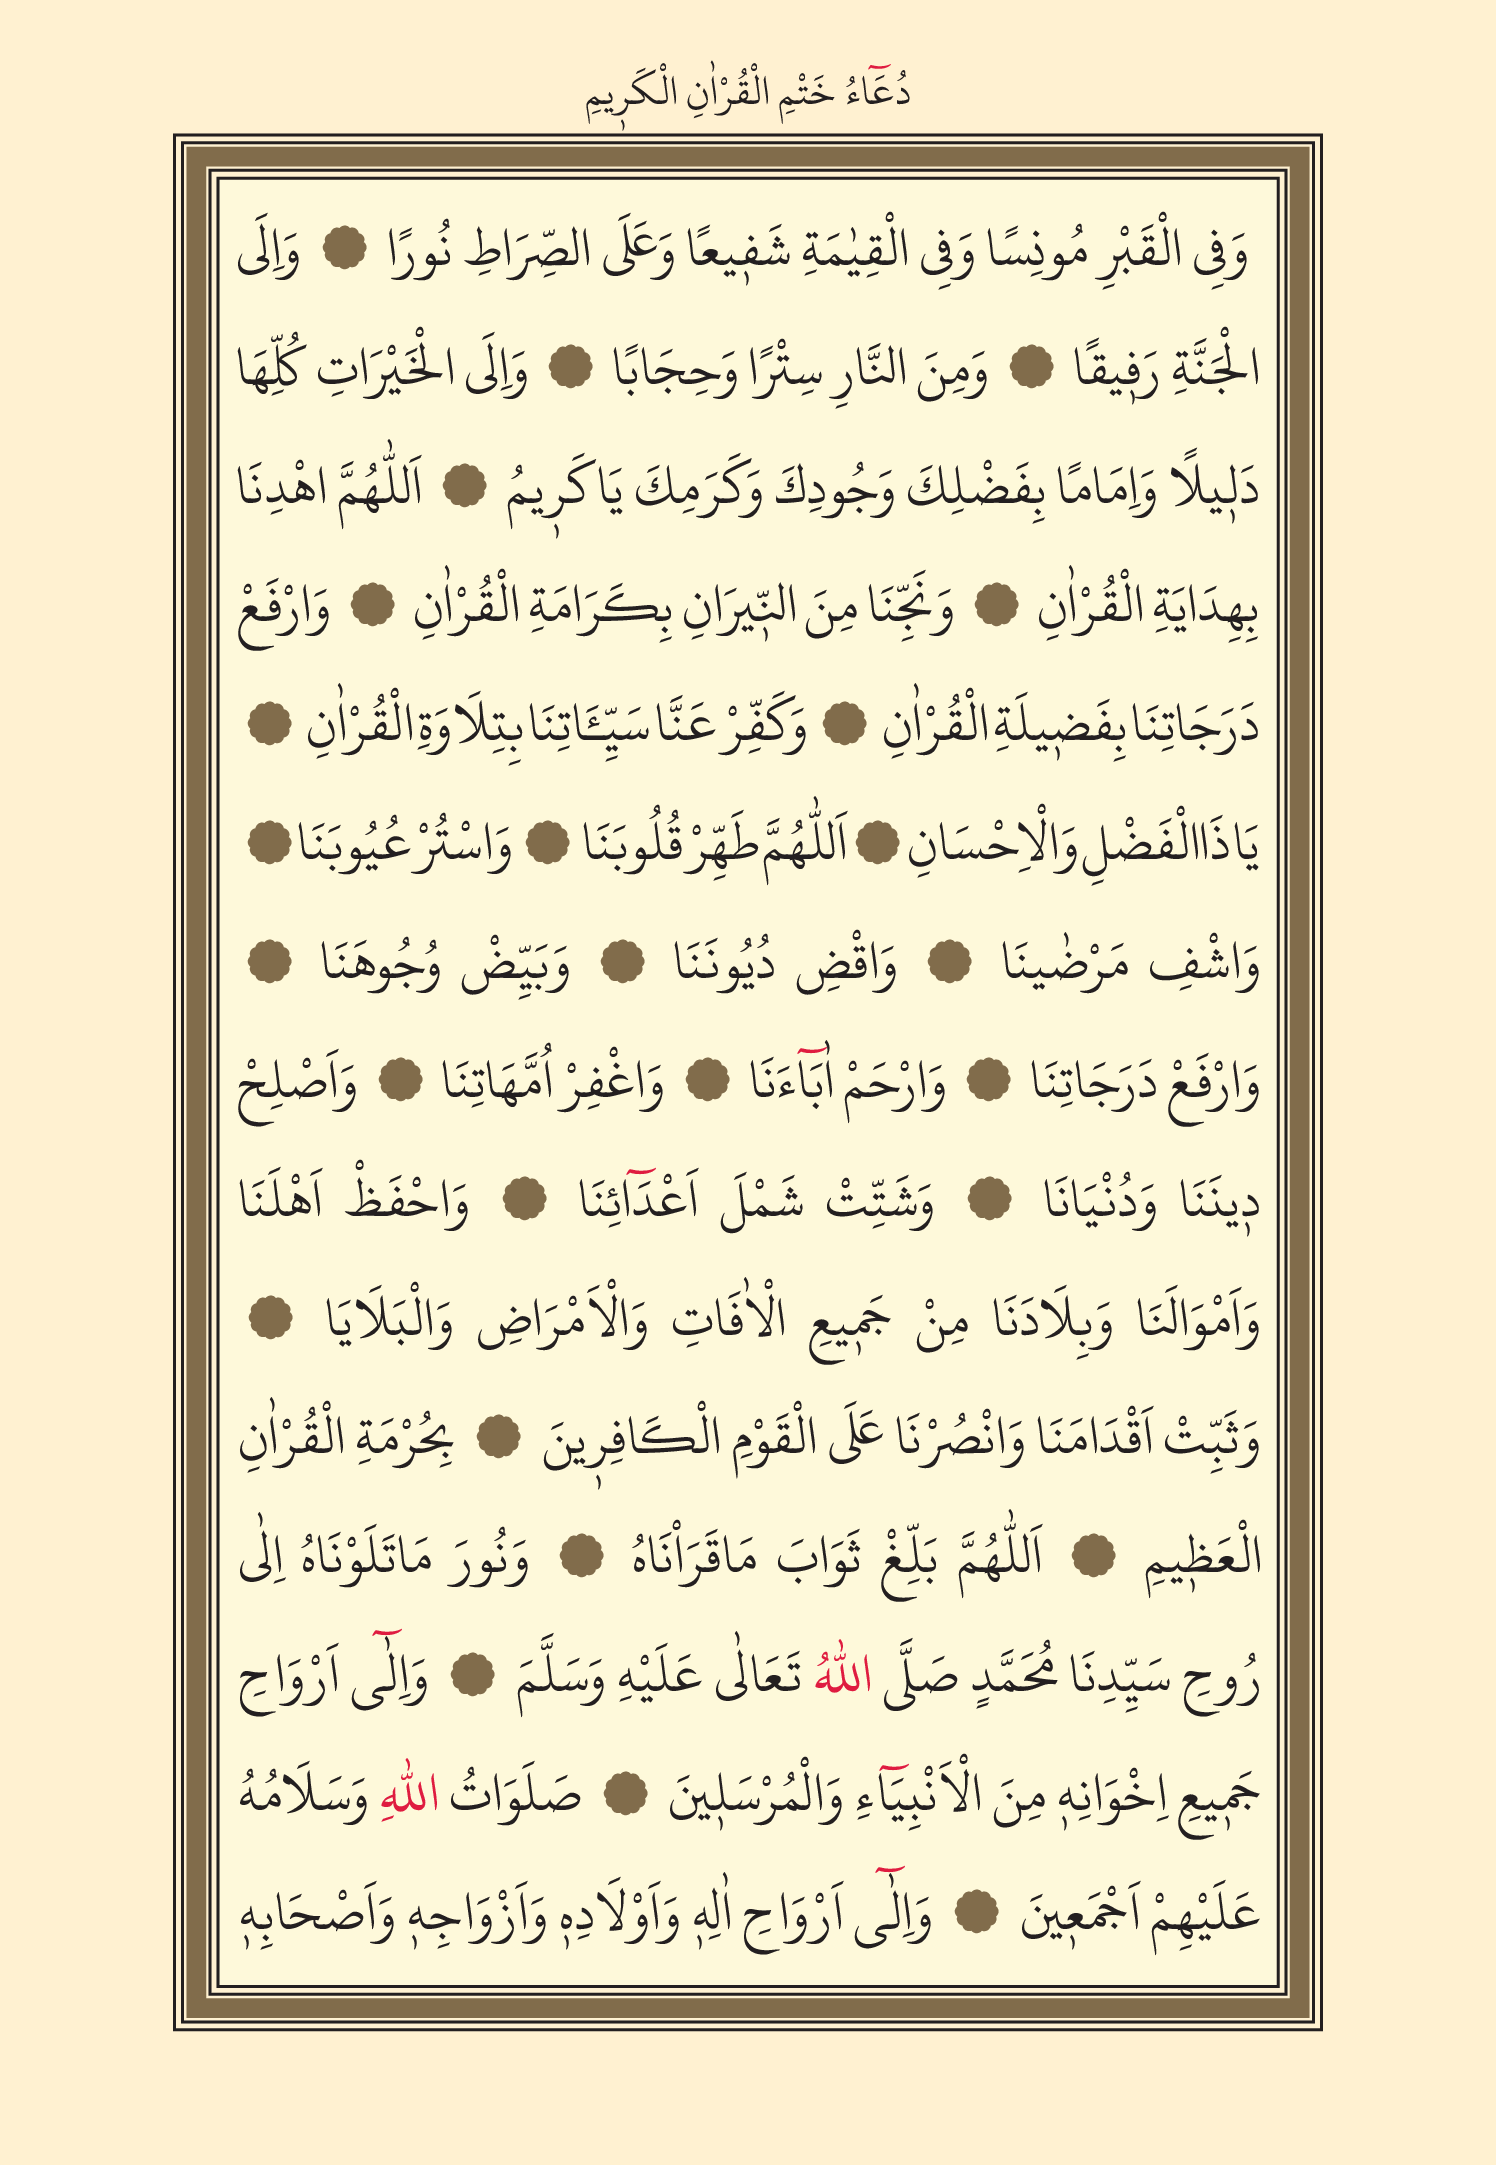 دُعَٓاءُ خَتْمِ الْقُرْاٰنِ الْكَر۪يمِ
وَفِى الْقَبْرِ مُونِسًا وَفِى الْقِيٰمَةِ شَف۪يعًا وَعَلَى الصِّرَاطِ نُورًا ۞ وَاِلَى
الْجَنَّةِ رَف۪يقًا ۞ وَمِنَ النَّارِ سِتْرًا وَحِجَابًا ۞ وَاِلَى الْخَيْرَاتِ كُلِّهَا
دَل۪يلًا وَاِمَامًا بِفَضْلِكَ وَجُودِكَ وَكَرَمِكَ يَا كَر۪يمُ ۞ اَللّٰهُمَّ اهْدِنَا
بِهِدَايَةِ الْقُرْاٰنِ ۞ وَنَجِّنَا مِنَ النّ۪يرَانِ بِكَرَامَةِ الْقُرْاٰنِ ۞ وَارْفَعْ
دَرَجَاتِنَا بِفَض۪يلَةِ الْقُرْاٰنِ ۞ وَكَفِّرْ عَنَّا سَيِّـَٔاتِنَا بِتِلَاوَةِ الْقُرْاٰنِ ۞
يَا ذَا الْفَضْلِ وَالْاِحْسَانِ ۞ اَللّٰهُمَّ طَهِّرْ قُلُوبَنَا ۞ وَاسْتُرْ عُيُوبَنَا ۞
وَاشْفِ مَرْضٰينَا ۞ وَاقْضِ دُيُونَنَا ۞ وَبَيِّضْ وُجُوهَنَا ۞
وَارْفَعْ دَرَجَاتِنَا ۞ وَارْحَمْ اٰبَٓاءَنَا ۞ وَاغْفِرْ اُمَّهَاتِنَا ۞ وَاَصْلِحْ
د۪ينَنَا وَدُنْيَانَا ۞ وَشَتِّتْ شَمْلَ اَعْدَٓائِنَا ۞ وَاحْفَظْ اَهْلَنَا
وَاَمْوَالَنَا وَبِلَادَنَا مِنْ جَم۪يعِ الْاٰفَاتِ وَالْاَمْرَاضِ وَالْبَلَايَا ۞
وَثَبِّتْ اَقْدَامَنَا وَانْصُرْنَا عَلَى الْقَوْمِ الْكَافِر۪ينَ ۞ بِحُرْمَةِ الْقُرْاٰنِ
الْعَظ۪يمِ ۞ اَللّٰهُمَّ بَلِّغْ ثَوَابَ مَاقَرَاْنَاهُ ۞ وَنُورَ مَاتَلَوْنَاهُ اِلٰى
رُوحِ سَيِّدِنَا مُحَمَّدٍ صَلَّى اللّٰهُ تَعَالٰى عَلَيْهِ وَسَلَّمَ ۞ وَاِلٰٓى اَرْوَاحِ
جَم۪يعِ اِخْوَانِه۪ مِنَ الْاَنْبِيَٓاءِ وَالْمُرْسَل۪ينَ ۞ صَلَوَاتُ اللّٰهِ وَسَلَامُهُ
عَلَيْهِمْ اَجْمَع۪ينَ ۞ وَاِلٰٓى اَرْوَاحِ اٰلِه۪ وَاَوْلَادِه۪ وَاَزْوَاجِه۪ وَاَصْحَابِه۪